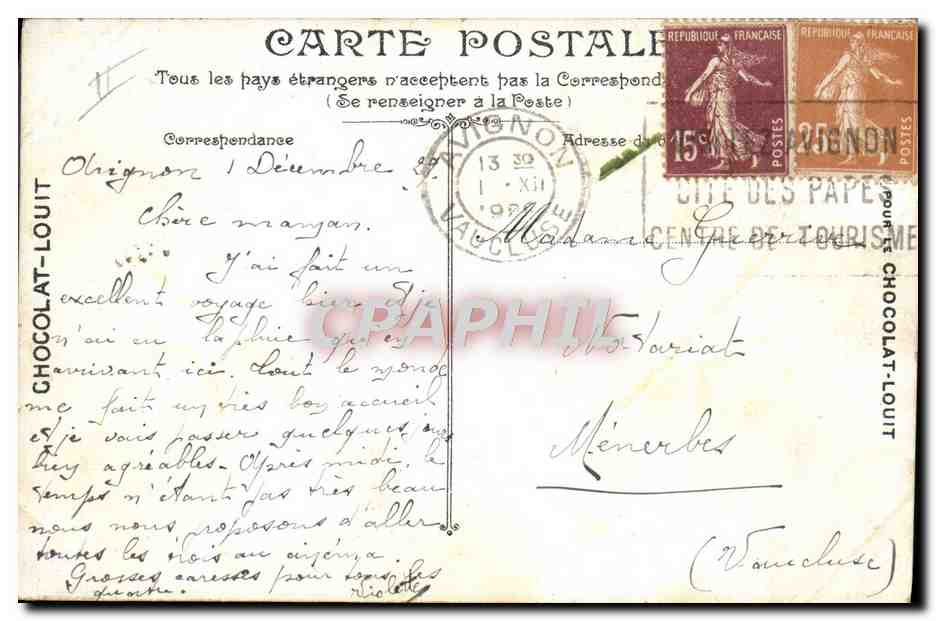 CARTE POSTALE
Tous les pays étrangers n'acceptent pas la Correspond
(Se renseigner à la Poste)
Correspondance
Adresse du
REPUBLIQUE FRANÇAISE
15c
POSTES
REPUBLIQUE FRANÇAISE
35c
POSTES
AVIGNON
13 30
1 XII
192
VAUCLUSE
AVIGNON
CITE DES PAPES
CENTRE DE TOURISME
CHOCOLAT-LOUIT
POUR LE CHOCOLAT-LOUIT
Avignon 1 Décembre
Chère maman.
J'ai fait un
excellent voyage bien et je
n'ai eu la pluie qu'en
arrivant ici. Tout le monde
me fait un très bon accueil
et je vais passer quelques jours
bien agréables. Après midi, le
temps n'étant pas très beau
nous nous proposons d'aller
toutes les trois au cinéma.
Grosses caresses pour tous les
quatre. Violette
Madame Guerrin
Notariat
Ménerbes
(Vaucluse)
CPAPHIL